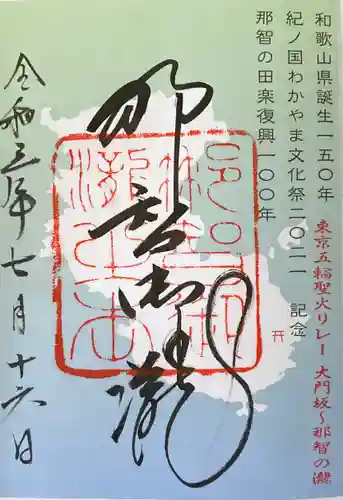 和歌山県誕生一五〇年
紀ノ国わかやま文化祭二〇二一 記念
那智の田楽復興一〇〇年
東京五輪聖火リレー 大門坂～那智の瀧
那智御瀧
令和三年七月十六日